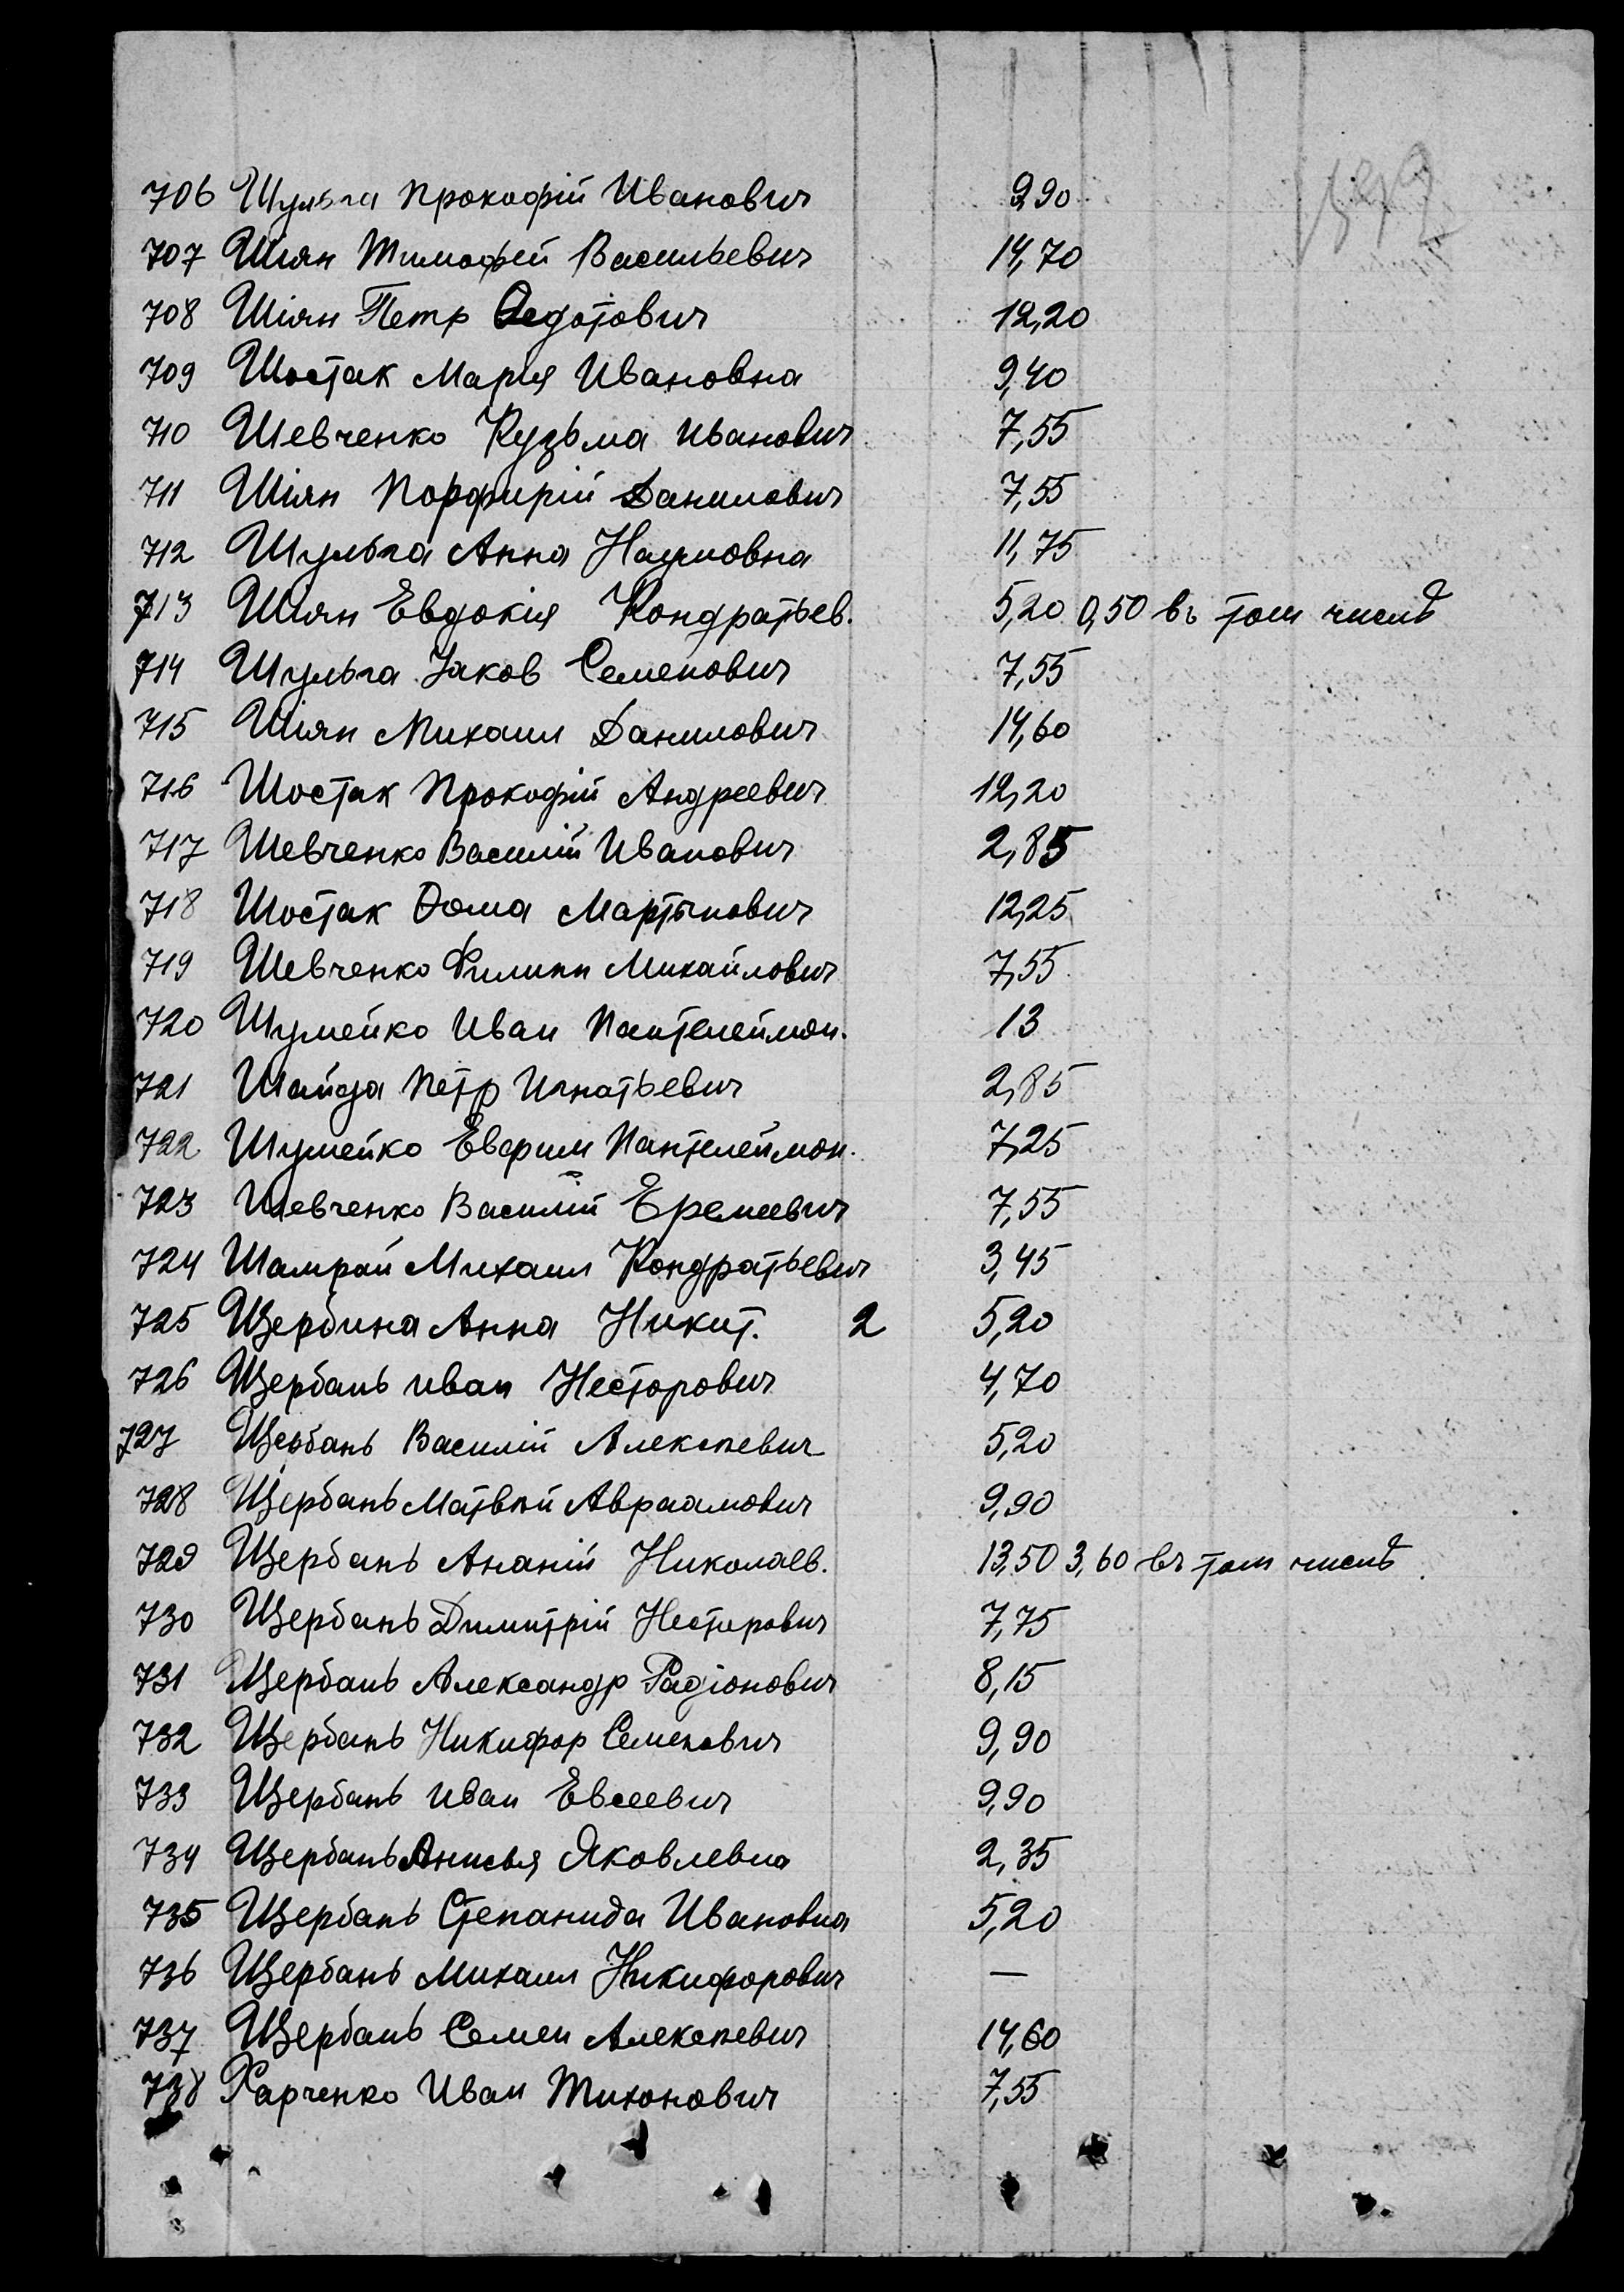 706 Шульга Прокофій Иванович 9,90
707 Шіян Тимофей Васильевич 14,70
708 Шіян Петр Ѳедотович 12,20
709 Шостак Мария Ивановна 9,40
710 Шевченко Кузьма Иванович 7,55
711 Шіян Порфирій Данилович 7,55
712 Шульга Анна Наумовна 11,75
713 Шіян Евдокія Кондратьев. 5,20 0,50 въ том числѣ
714 Шульга Іаков Семенович 7,55
715 Шіян Михаил Данилович 14,60
716 Шостак Прокофій Андреевич 12,20
717 Шевченко Василій Иванович 2,85
718 Шостак Ѳома Мартынович 12,25
719 Шевченко Филипп Михайлович 7,55
720 Шумейко Иван Пантелеймон. 13
721 Шайда Петр Игнатьевич 2,85
722 Шумейко Евфим Пантелеймон. 7,25
723 Шевченко Василій Еремеевич 7,55
724 Шамрай Михаил Кондратьевич 3,45
725 Щербина Анна Никит. 2 5,20
726 Щербань Иван Несторович 4,70
727 Щербань Василій Алексѣевич 5,20
728 Щербань Матвѣй Авраамович 9,90
729 Щербань Ананій Николаев. 13,50 3,60 въ том числѣ
730 Щербань Димитрій Несторович 7,75
731 Щербань Александр Радіонович 8,15
732 Щербань Никифор Семенович 9,90
733 Щербань Иван Евсеевич 9,90
734 Щербань Анисья Яковлевна 2,35
735 Щербань Степанида Ивановна 5,20
736 Щербань Михаил Никифорович —
737 Щербань Семен Алексѣевич 14,60
738 Харченко Иван Тихонович 7,55